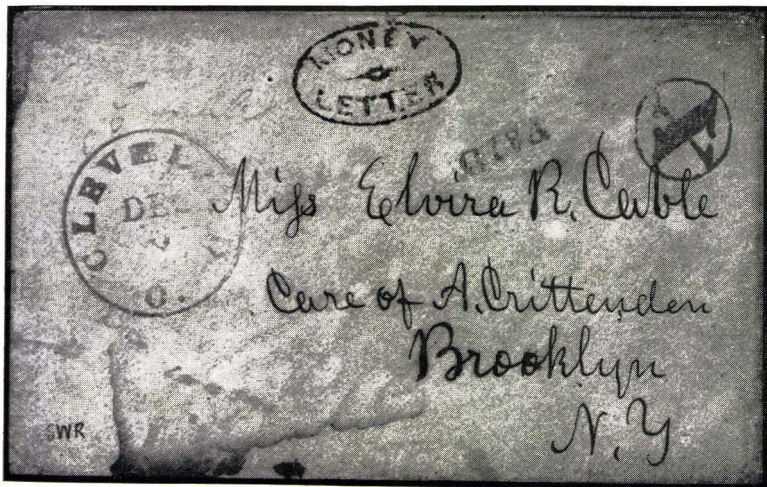 MONEY
LETTER
PAID
CLEVEL
DE
O.
Miss Elvira R. Cable
Care of A. Crittenden
Brooklyn
N.Y
SWR